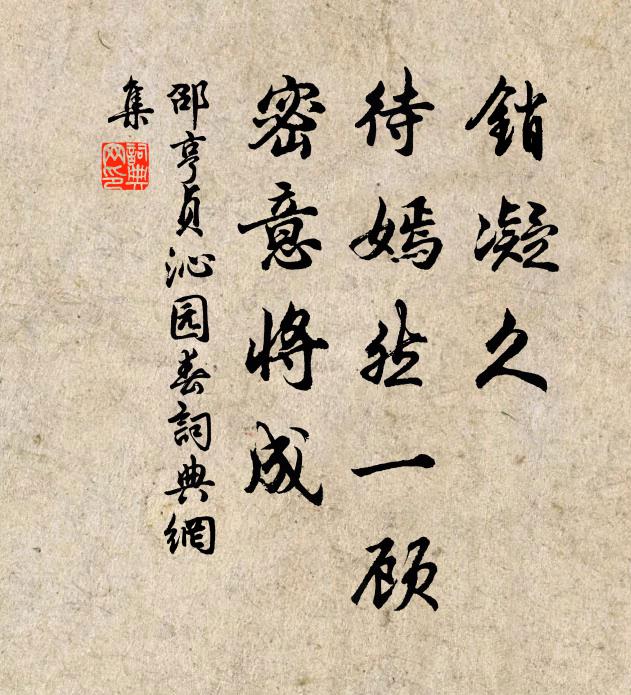 銷凝久
待嫣然一顾
密意将成
邵亨貞沁园春詞典網
集
詞典
网印